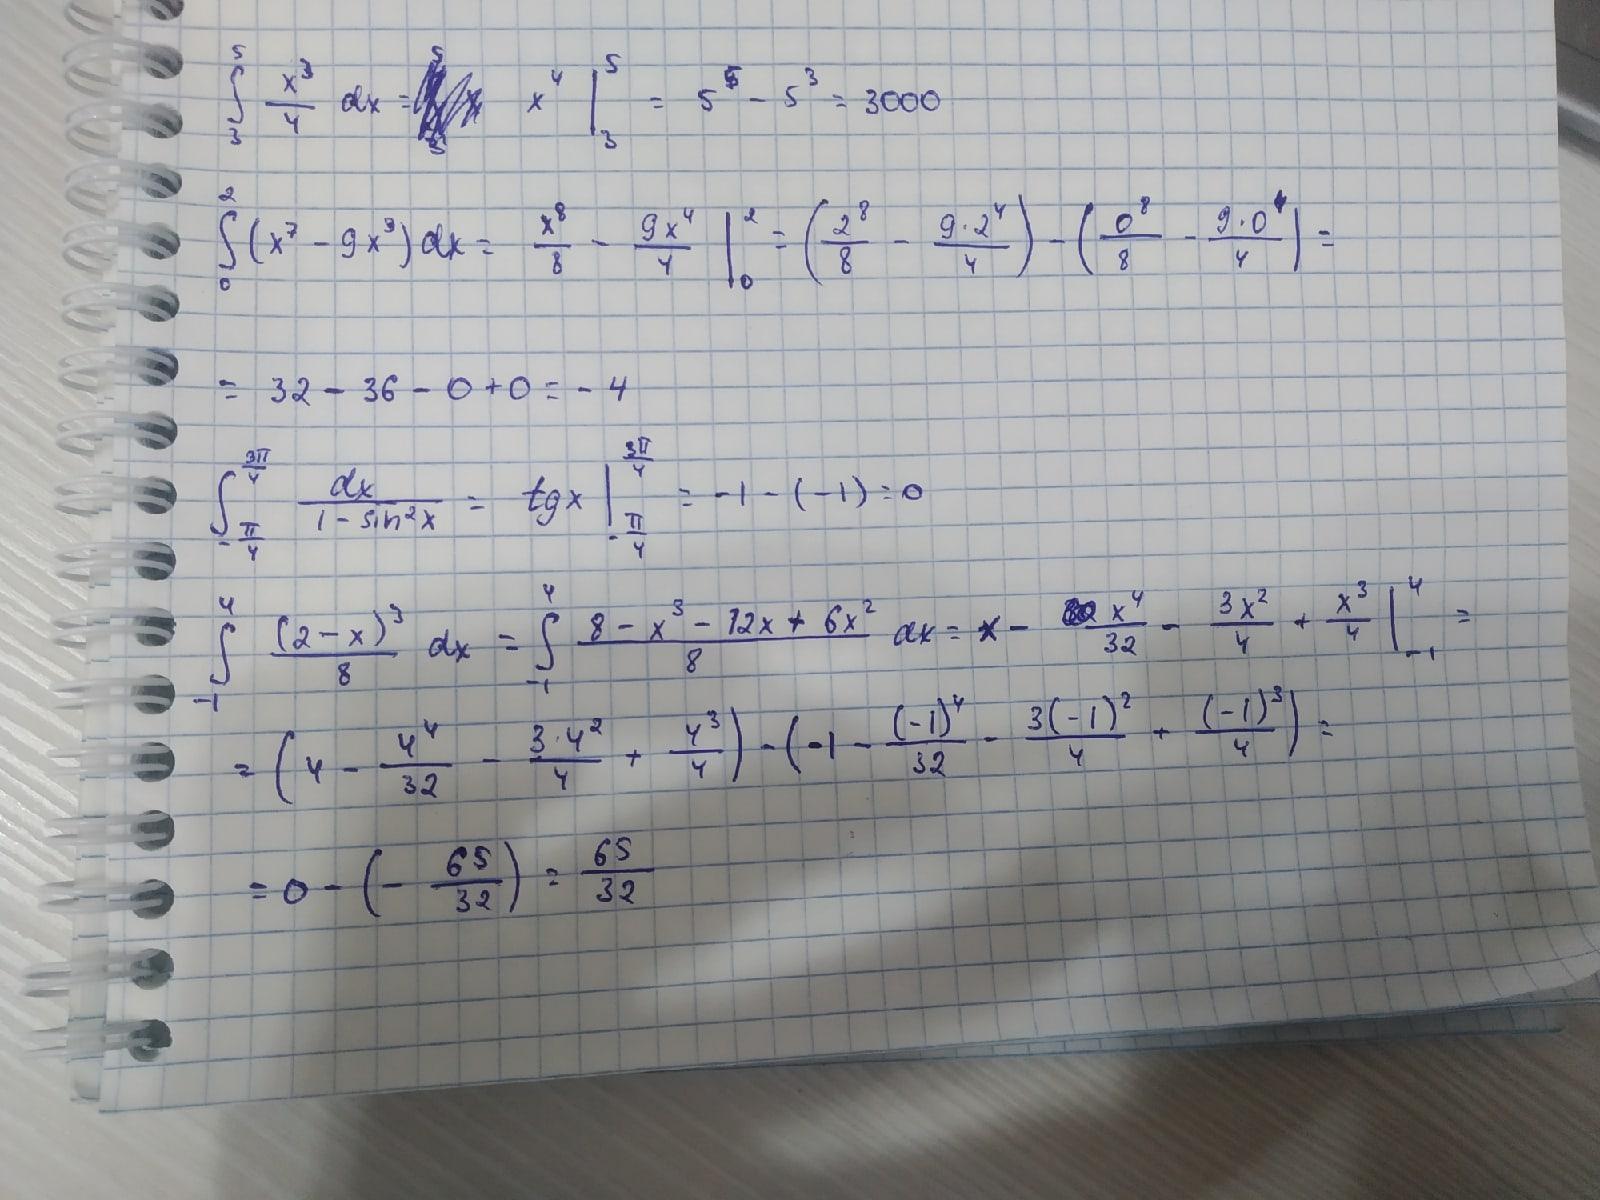 ∫₃⁵ x³/4 dx = x⁴ |₃⁵ = 5⁵ - 5³ = 3000
∫₀² (x⁷ - 9x³) dx = x⁸/8 - 9x⁴/4 |₀² = (2⁸/8 - 9·2⁴/4) - (0⁸/8 - 9·0⁴/4) =
= 32 - 36 - 0 + 0 = - 4
∫_{-π/4}^{3π/4} dx/(1 - sin²x) = tg x |_{-π/4}^{3π/4} = -1 - (-1) = 0
∫₋₁⁴ (2 - x)³/8 dx = ∫₋₁⁴ (8 - x³ - 12x + 6x²)/8 dx = x - x⁴/32 - 3x²/4 + x³/4 |₋₁⁴ =
= (4 - 4⁴/32 - 3·4²/4 + 4³/4) - (-1 - (-1)⁴/32 - 3(-1)²/4 + (-1)³/4) =
= 0 - (- 65/32) = 65/32